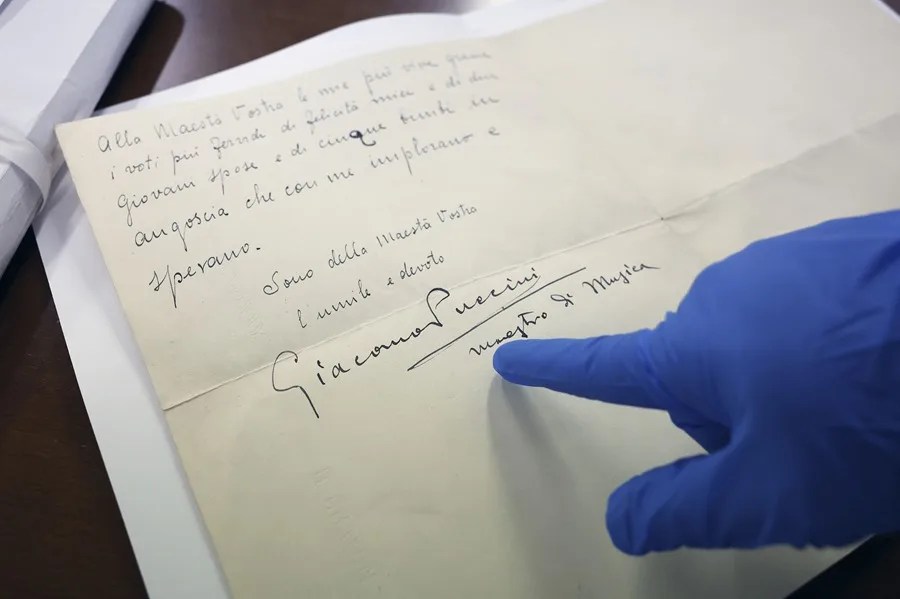 Alla Maestà Vostra le mie più vive
i voti più fervidi di felicità miei e di due
giovani spose e di cinque bimbi in
angoscia che con me implorano e
sperano.
Sono della Maestà Vostra
l'umile e devoto
Giacomo Puccini
maestro di Musica